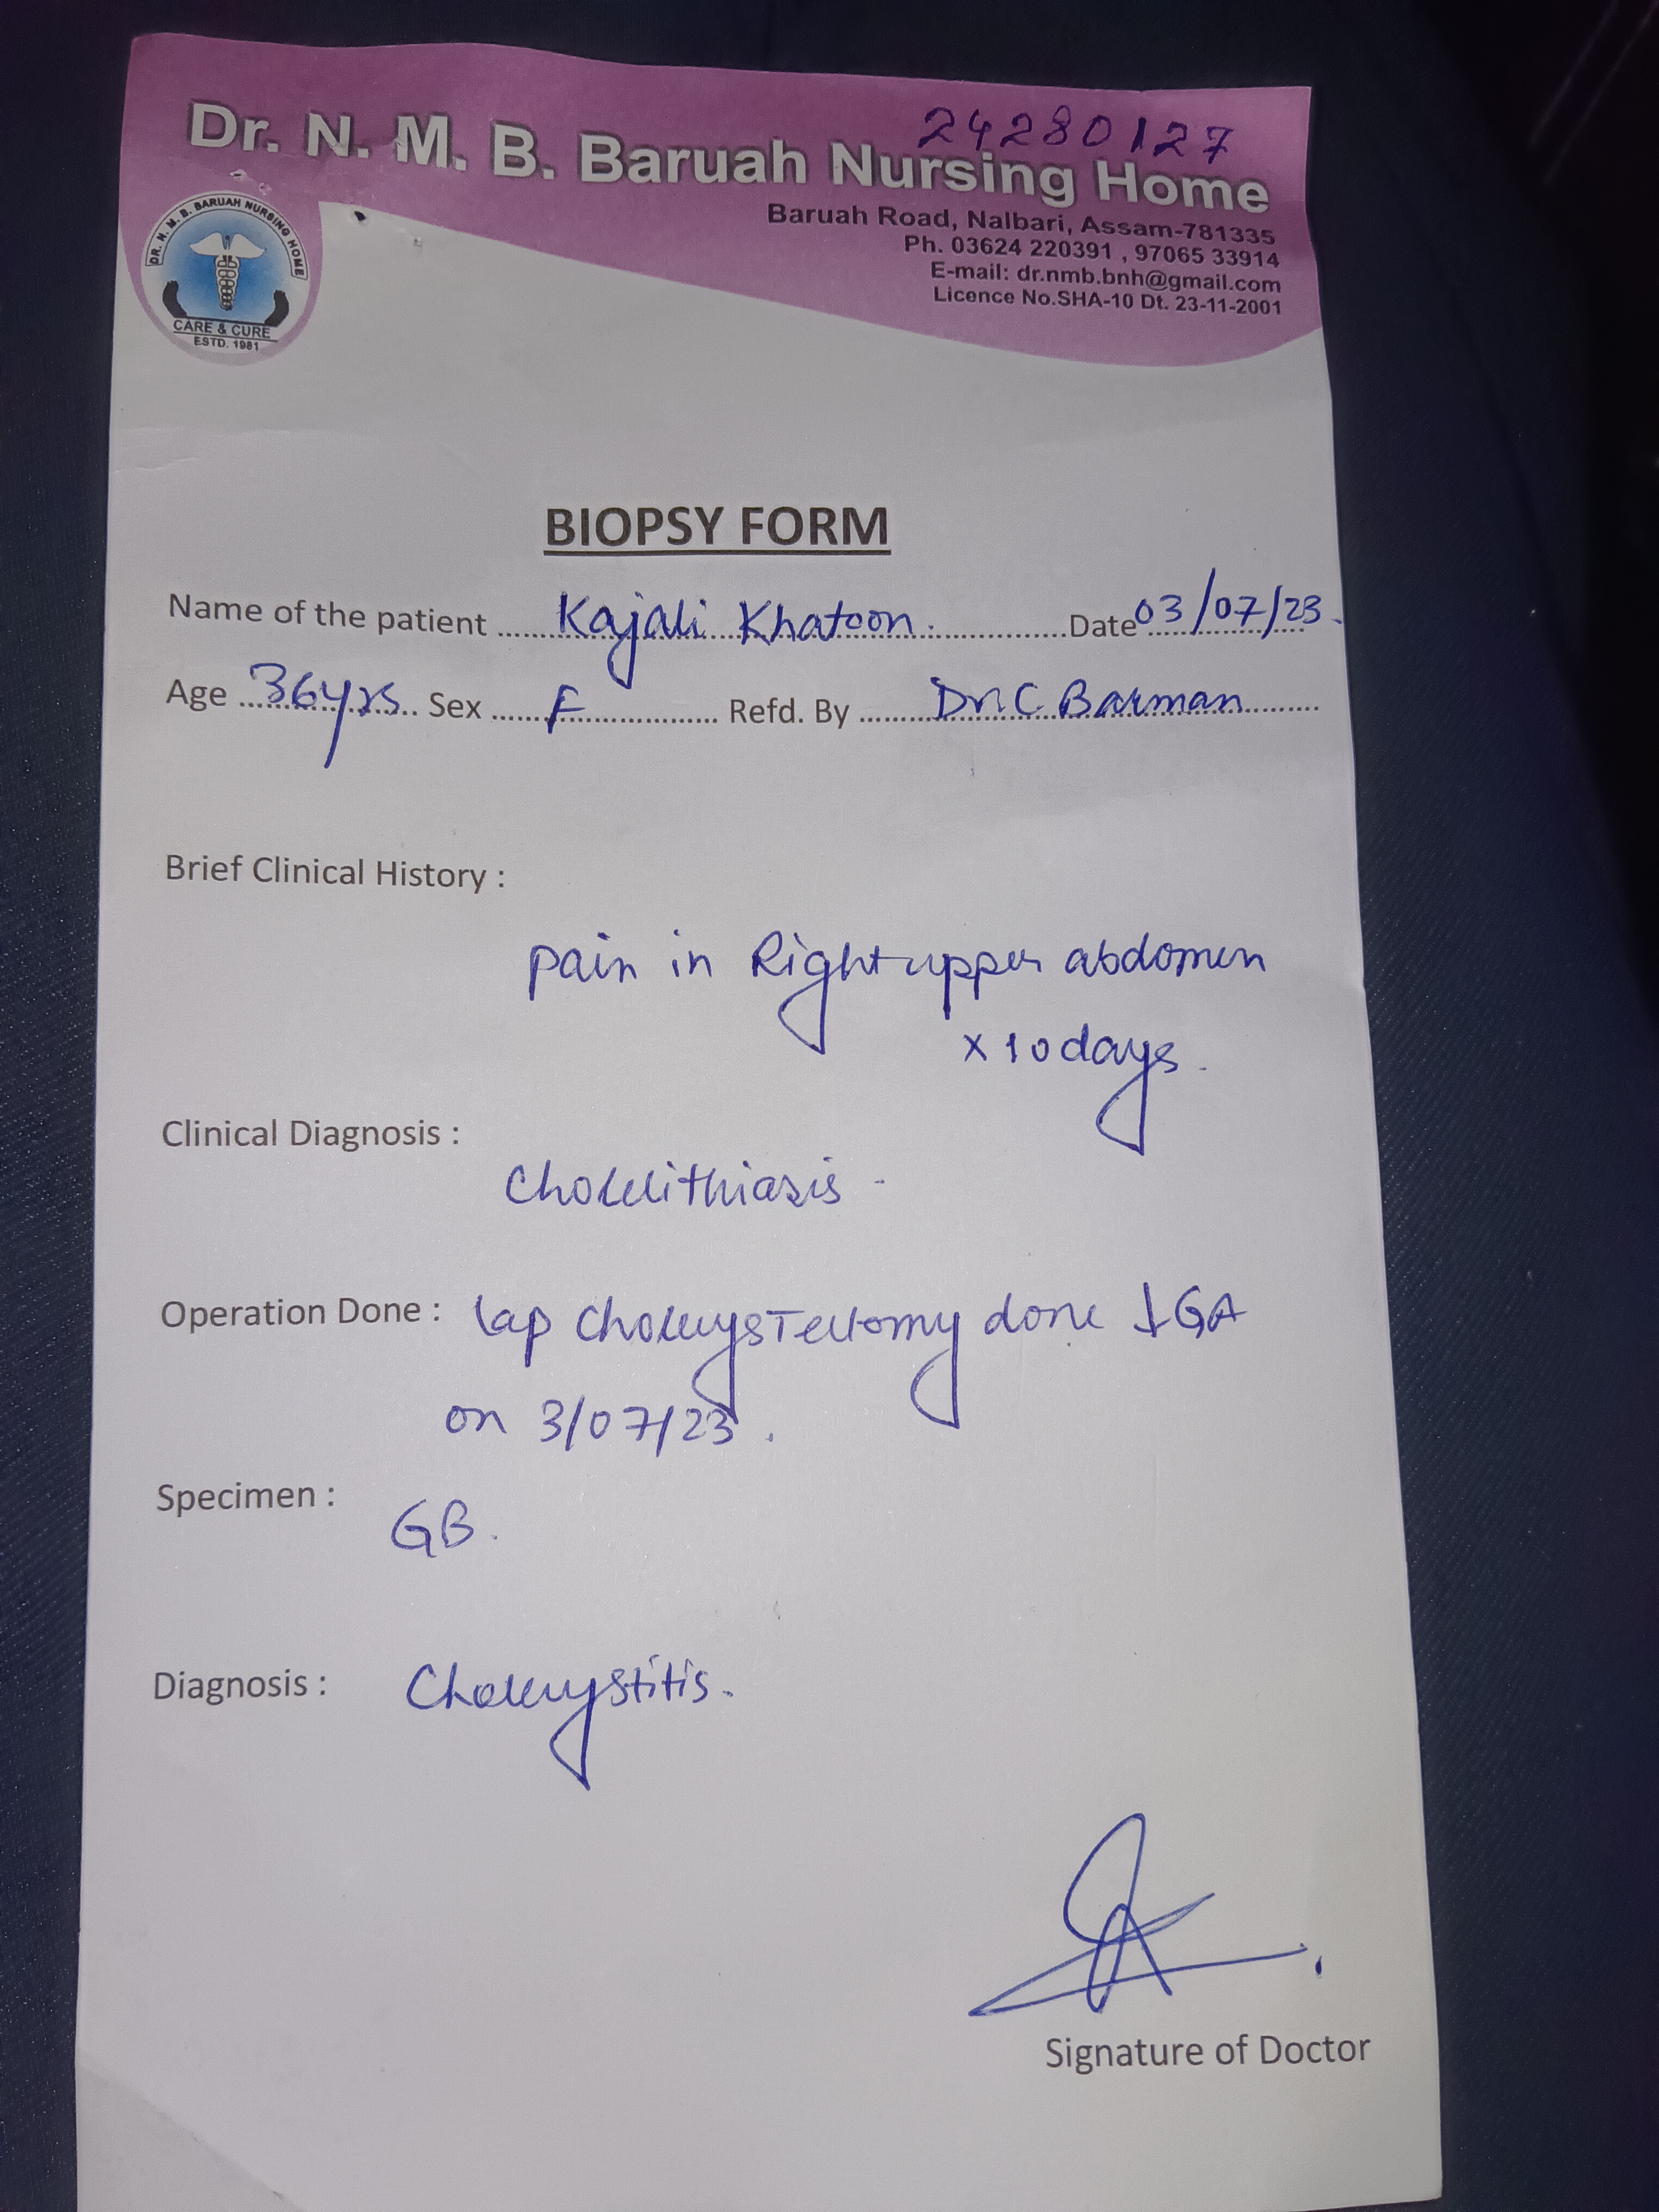 24280127
Dr. N. M. B. Baruah Nursing Home
Baruah Road, Nalbari, Assam-781335
Ph. 03624 220391 , 97065 33914
E-mail: dr.nmb.bnh@gmail.com
Licence No.SHA-10 Dt. 23-11-2001
DR. N. M. B. BARUAH NURSING HOME
CARE & CURE
ESTD. 1981
BIOPSY FORM
Name of the patient Kajali Khatoon. Date 03/07/23.
Age 36yrs Sex F Refd. By Dr. C Barman
Brief Clinical History :
pain in Right upper abdomen
x 10 days.
Clinical Diagnosis :
Cholelithiasis -
Operation Done : Lap cholecystectomy done ↓ GA
on 3/07/23.
Specimen :
GB.
Diagnosis : Cholecystitis.
Signature of Doctor